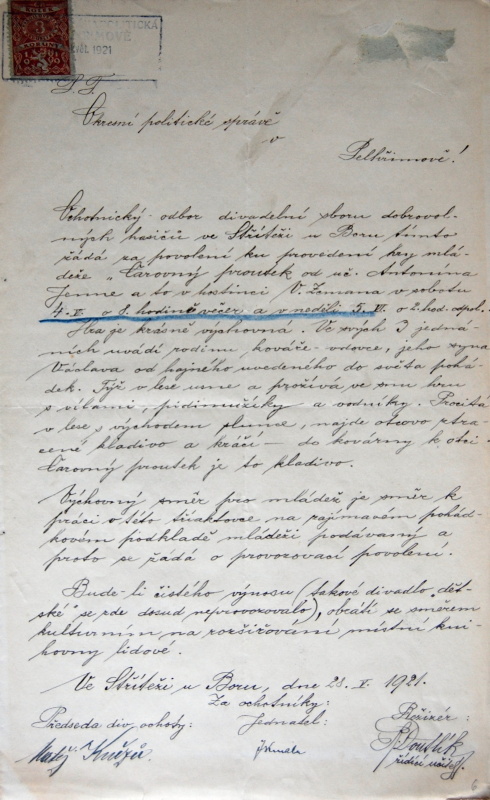 KOLEK
KORUNY
POLITICKÁ
1921
P. T.
Okresní politické správě
v
Pelhřimově!
Ochotnický odbor divadelní sboru dobrovol-
ných hasičů ve Střítěži u Boru tímto
žádá za povolení ku provedení hry mlá-
deže „Čarovný proutek od uč. Antonína
Jenne a to v hostinci V. Zemana v sobotu
4. V. o 8. hodině večer, a v neděli 5. VI. o 2. hod. odpol.
Hra je krásně výchovná. Ve svých 3 jedná-
ních uvádí rodinu kováře-vdovce, jeho syna
Václava od hajného uvedeného do světa pohá-
dek. Týž v lese usne a prožívá ve snu hru
s vílami, pidimužíky a vodníky. Procitá
v lese s východem slunce, najde otcovo ztra-
cené kladivo a kráčí – do kovárny k otci.
Čarovný proutek je to kladivo.
Výchovný směr pro mládež je směr k
práci v této tříaktovce na zajímavém pohád-
kovém podkladě mládeži podávaný a
proto se žádá o provozovací povolení.
Bude-li čistého výnosu (takové divadlo „dět-
ské" se zde dosud neprovozovalo), obrátí se směrem
kulturním na rozšiřování místní kni-
hovny lidové.
Ve Střítěži u Boru, dne 28. V. 1921.
Za ochotníky:
Předseda div. ochoty: Jednatel: Režizér:
Matěj Kněžů
řídící učitel